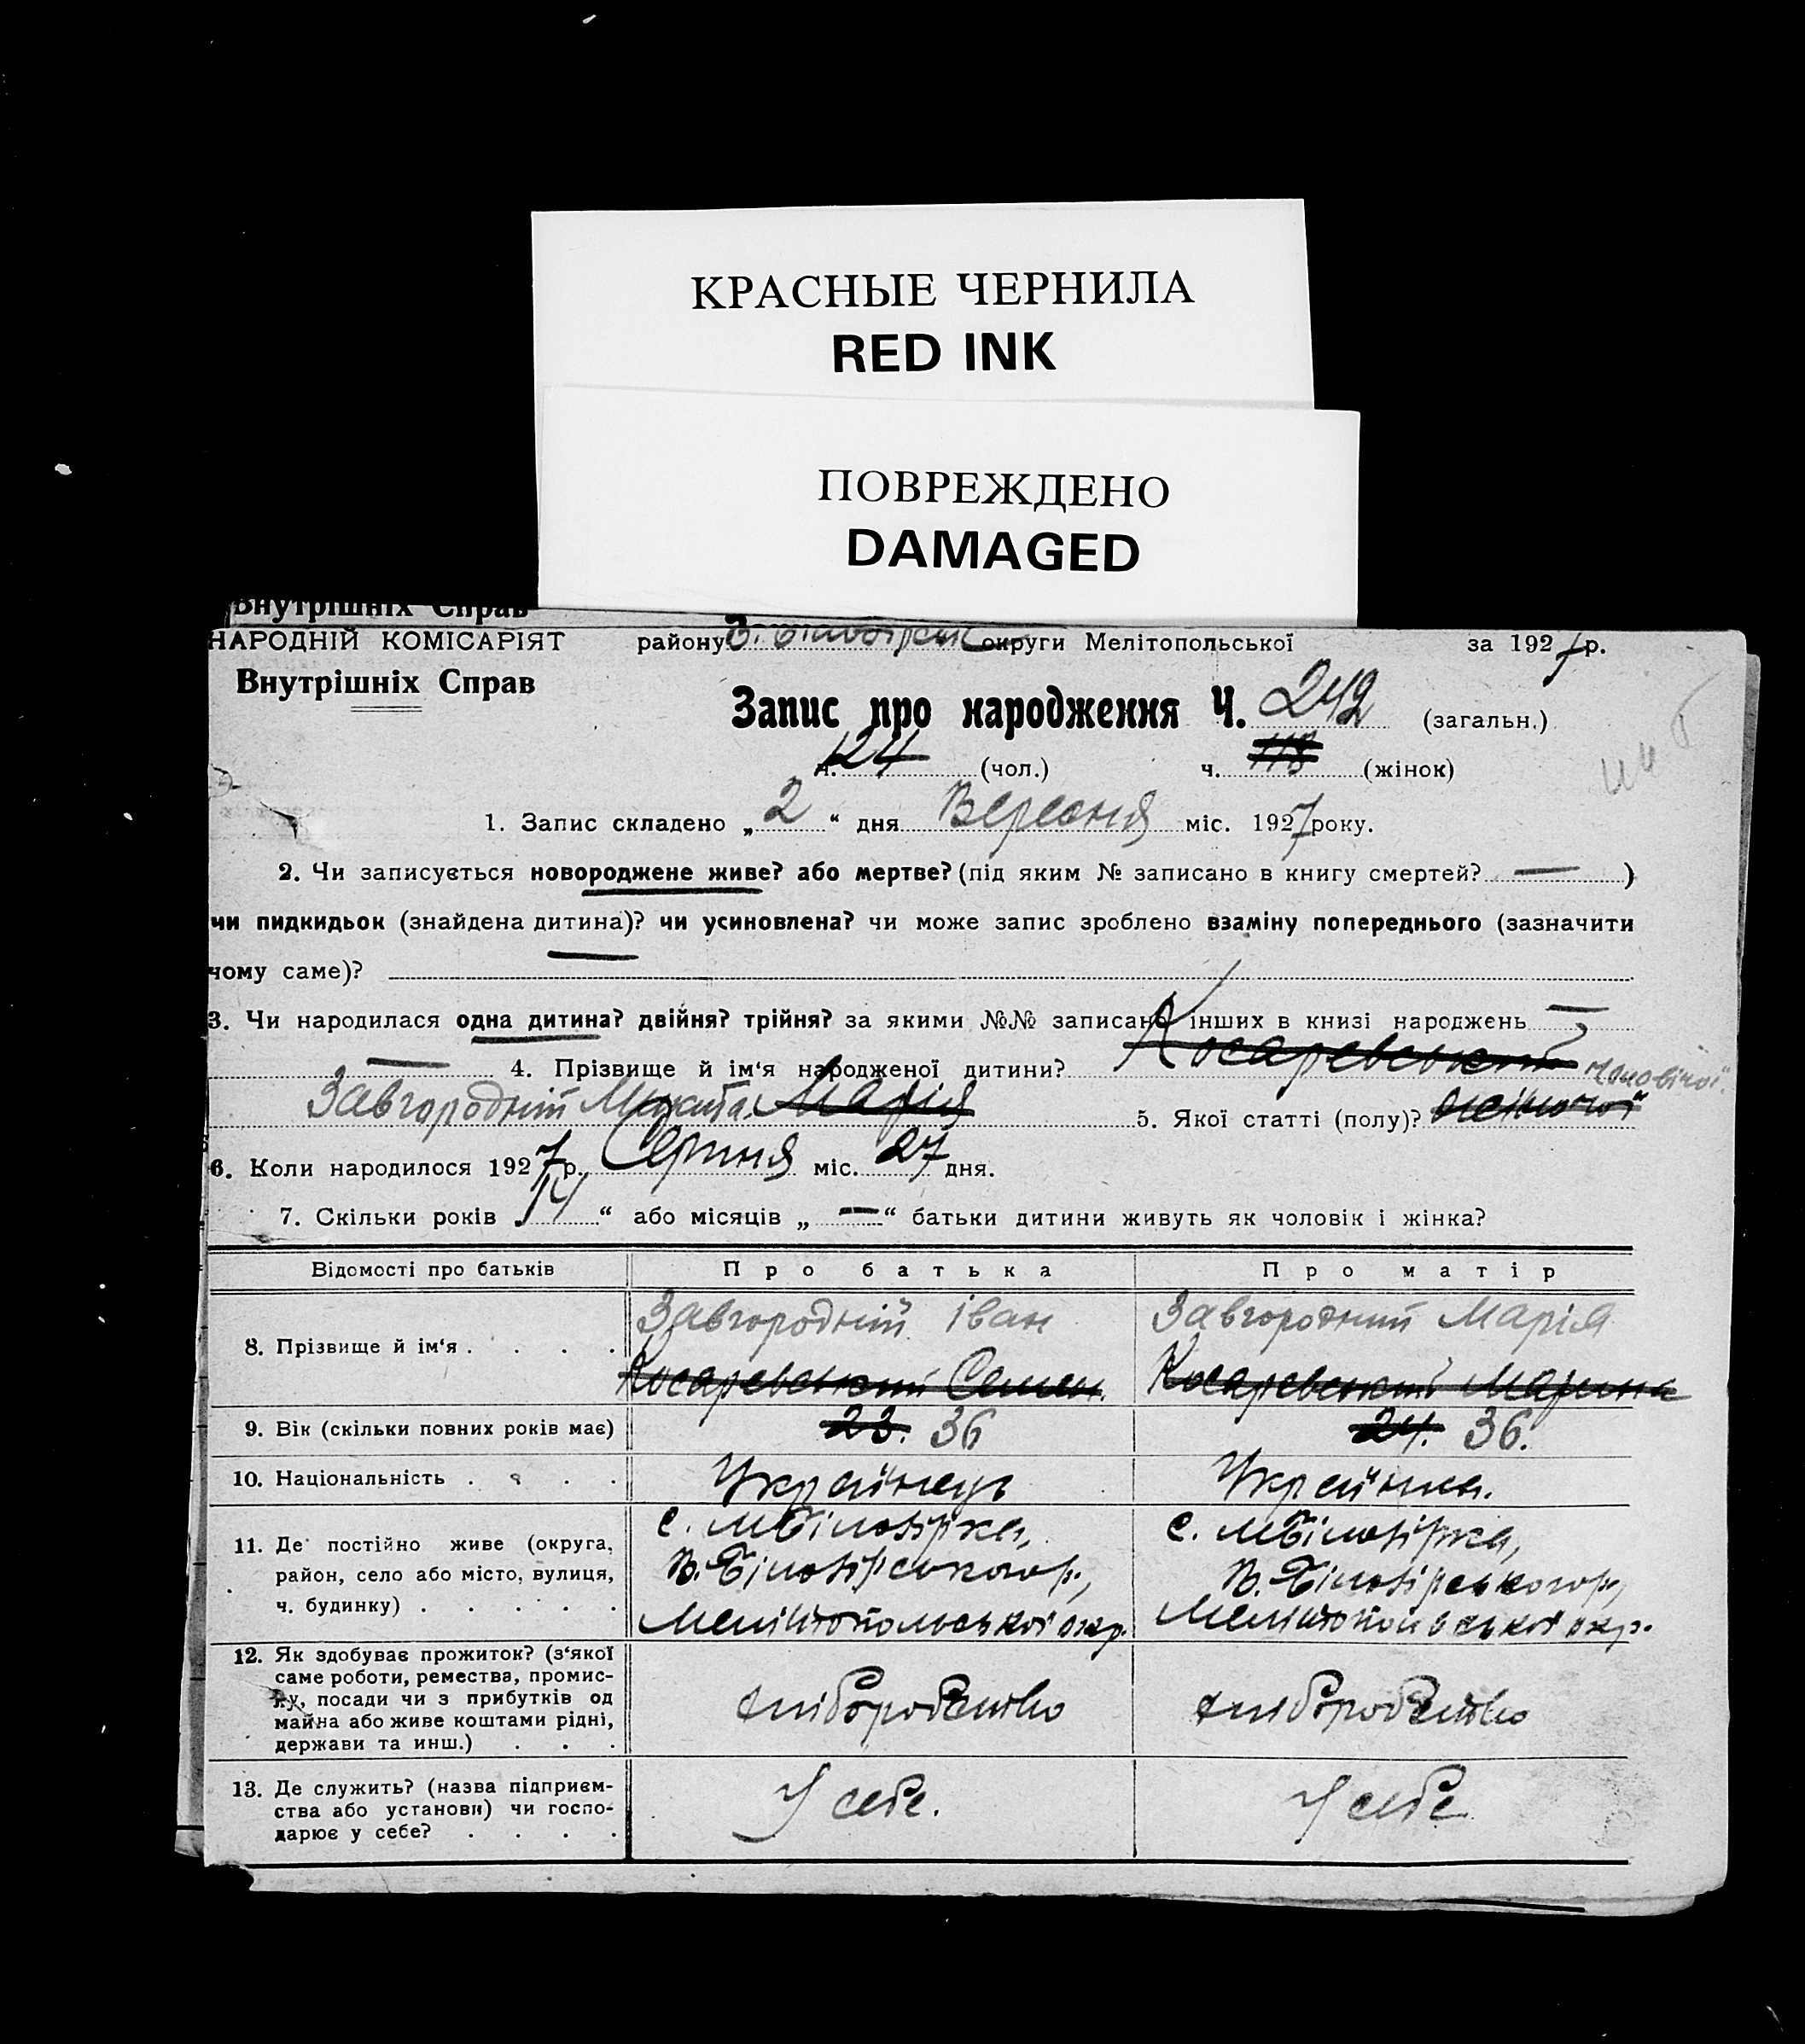 КРАСНЫЕ ЧЕРНИЛА
RED INK
ПОВРЕЖДЕНО
DAMAGED
Внутрішніх Справ
НАРОДНІЙ КОМІСАРІЯТ району округи Мелітопольської за 1927 р.
Внутрішніх Справ
Запис про народження Ч. 242 (загальн.)
ч. 124 (чол.) ч. 118 (жінок)
1. Запис складено „ 2 “ дня Вересня міс. 1927 року.
2. Чи записується новороджене живе? або мертве? (під яким № записано в книгу смертей? — )
чи пидкидьок (знайдена дитина)? чи усиновлена? чи може запис зроблено взаміну попереднього (зазначити
чому саме)? —
3. Чи народилася одна дитина? двійня? трійня? за якими №№ записано інших в книзі народжень —
— 4. Прізвище й ім‘я народженої дитини? Косаревський чоловічої
Завгородній Микита Марія 5. Якої статті (полу)? жіночої
6. Коли народилося 1927 р. Серпня міс. 27 дня.
7. Скільки років „ 14 “ або місяців „ — “ батьки дитини живуть як чоловік і жінка?
Відомості про батьків Про батька Про матір
Завгородній Іван Завгородний Марія
8. Прізвище й ім‘я . . . .
Косаревський Семен. Косаревський Марина
9. Вік (скільки повних років має) 23. 36 24. 36.
10. Національність . . . . Українець Українка.
11. Де постійно живе (округа, район, село або місто, вулиця, ч. будинку) . . . . .
с. МБілозірка, с. МБілозірка,
В. Білозірського р., В. Білозірського р.,
Мелітопольської окр. Мелітопольської окр.
12. Як здобуває прожиток? (з‘якої
саме роботи, ремества, промис-
лу, посади чи з прибутків од
майна або живе коштами рідні,
держави та инш.) . . .
хліборобство хліборобство
13. Де служить? (назва підприєм-
ства або установи) чи госпо-
дарює у себе? . . . .
У себе. У себе